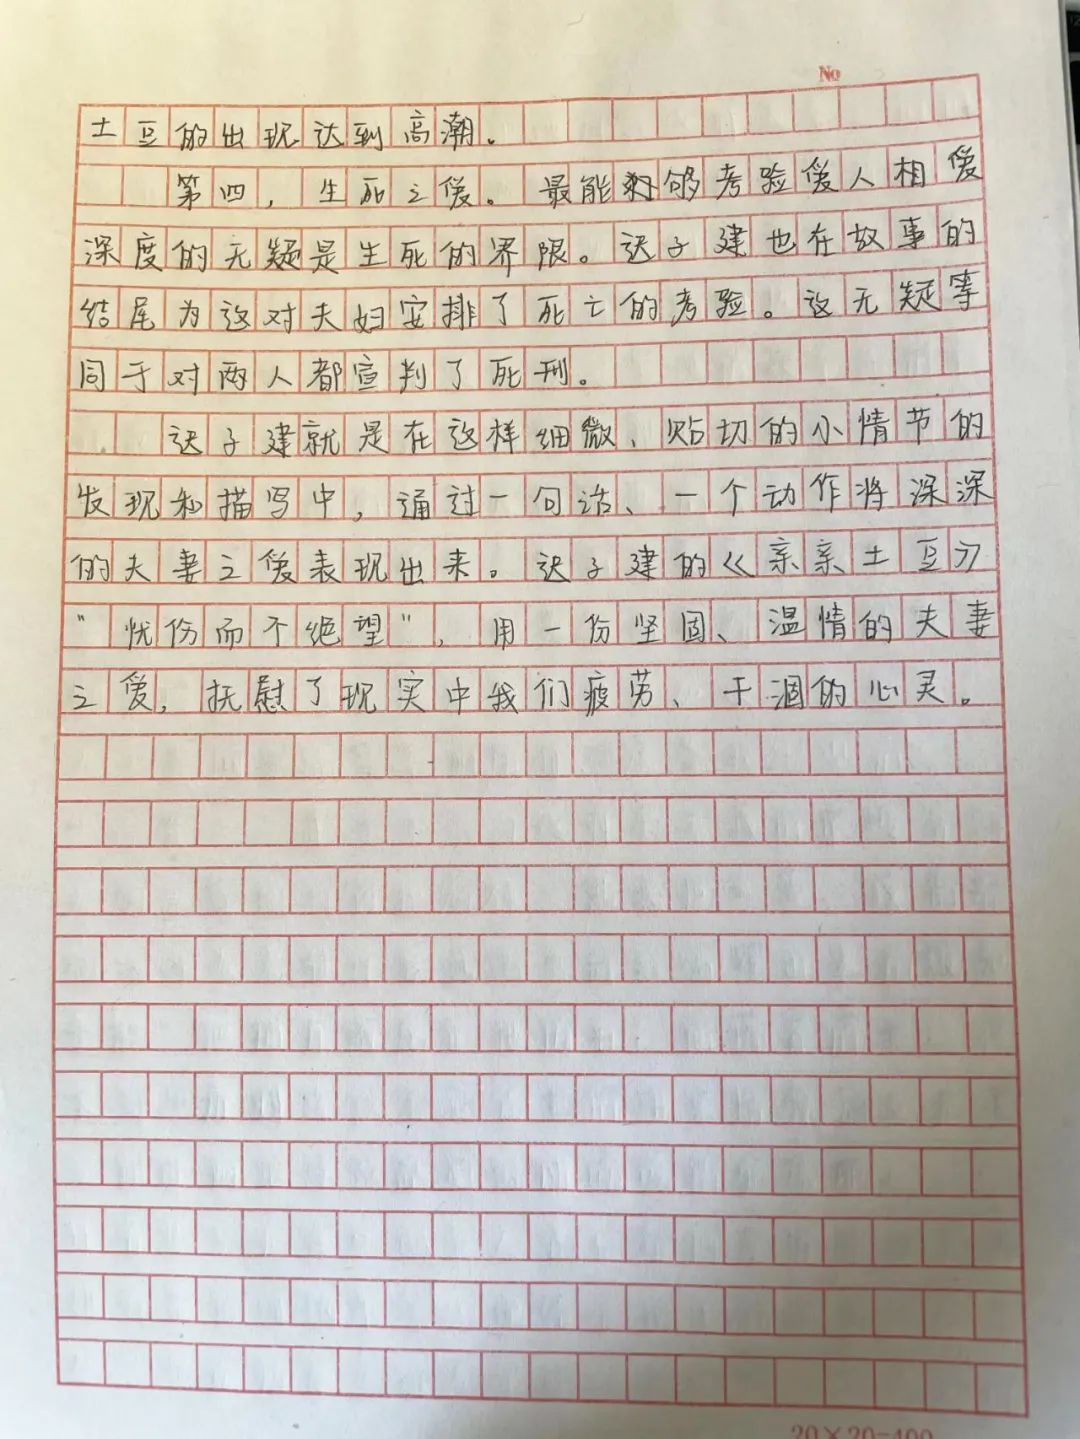 No
土豆的出现达到高潮。
第四，生死之爱。最能够考验爱人相爱
深度的无疑是生死的界限。迟子建也在故事的
结尾为这对夫妇安排了死亡的考验。这无疑等
同于对两人都宣判了死刑。
迟子建就是在这样细微、贴切的小情节的
发现和描写中，通过一句话、一个动作将深深
的夫妻之爱表现出来。迟子建的《亲亲土豆》
“忧伤而不绝望”，用一份坚固、温情的夫妻
之爱，抚慰了现实中我们疲劳、干涸的心灵。
20×20=400